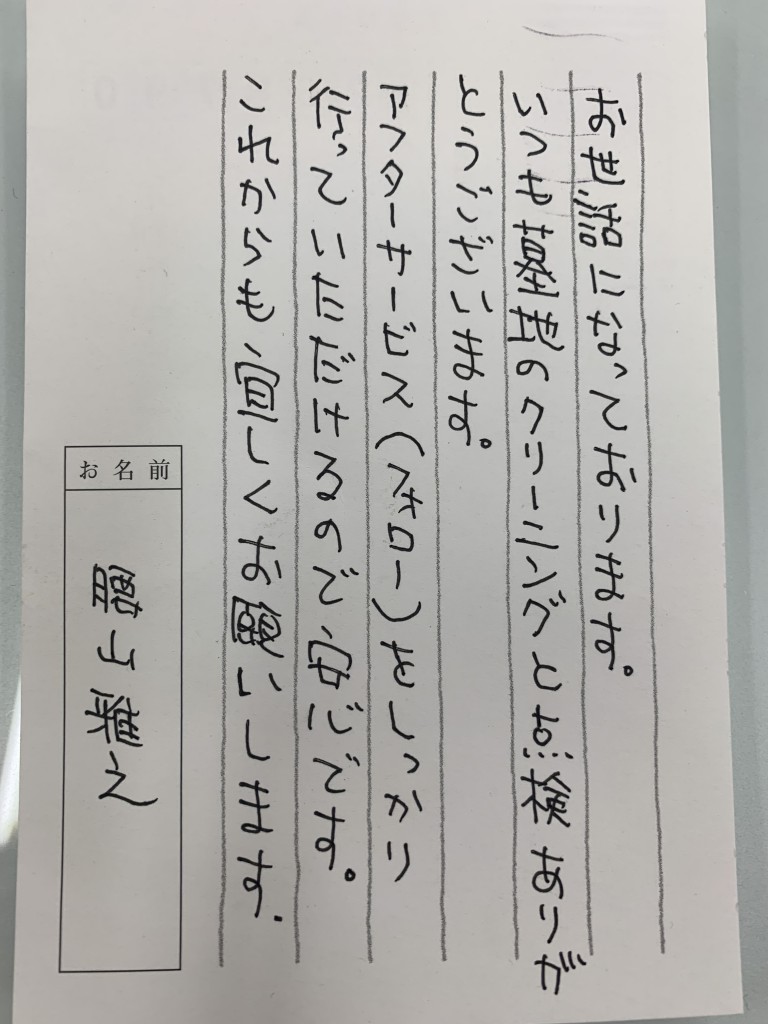 お世話になっております。
いつも丁寧のクリーリングと点検ありが
とうございます。
アフターサービス(フォロー)をしっかり
行っていただけるので安心です。
これからも宜しくお願いします.
お名前